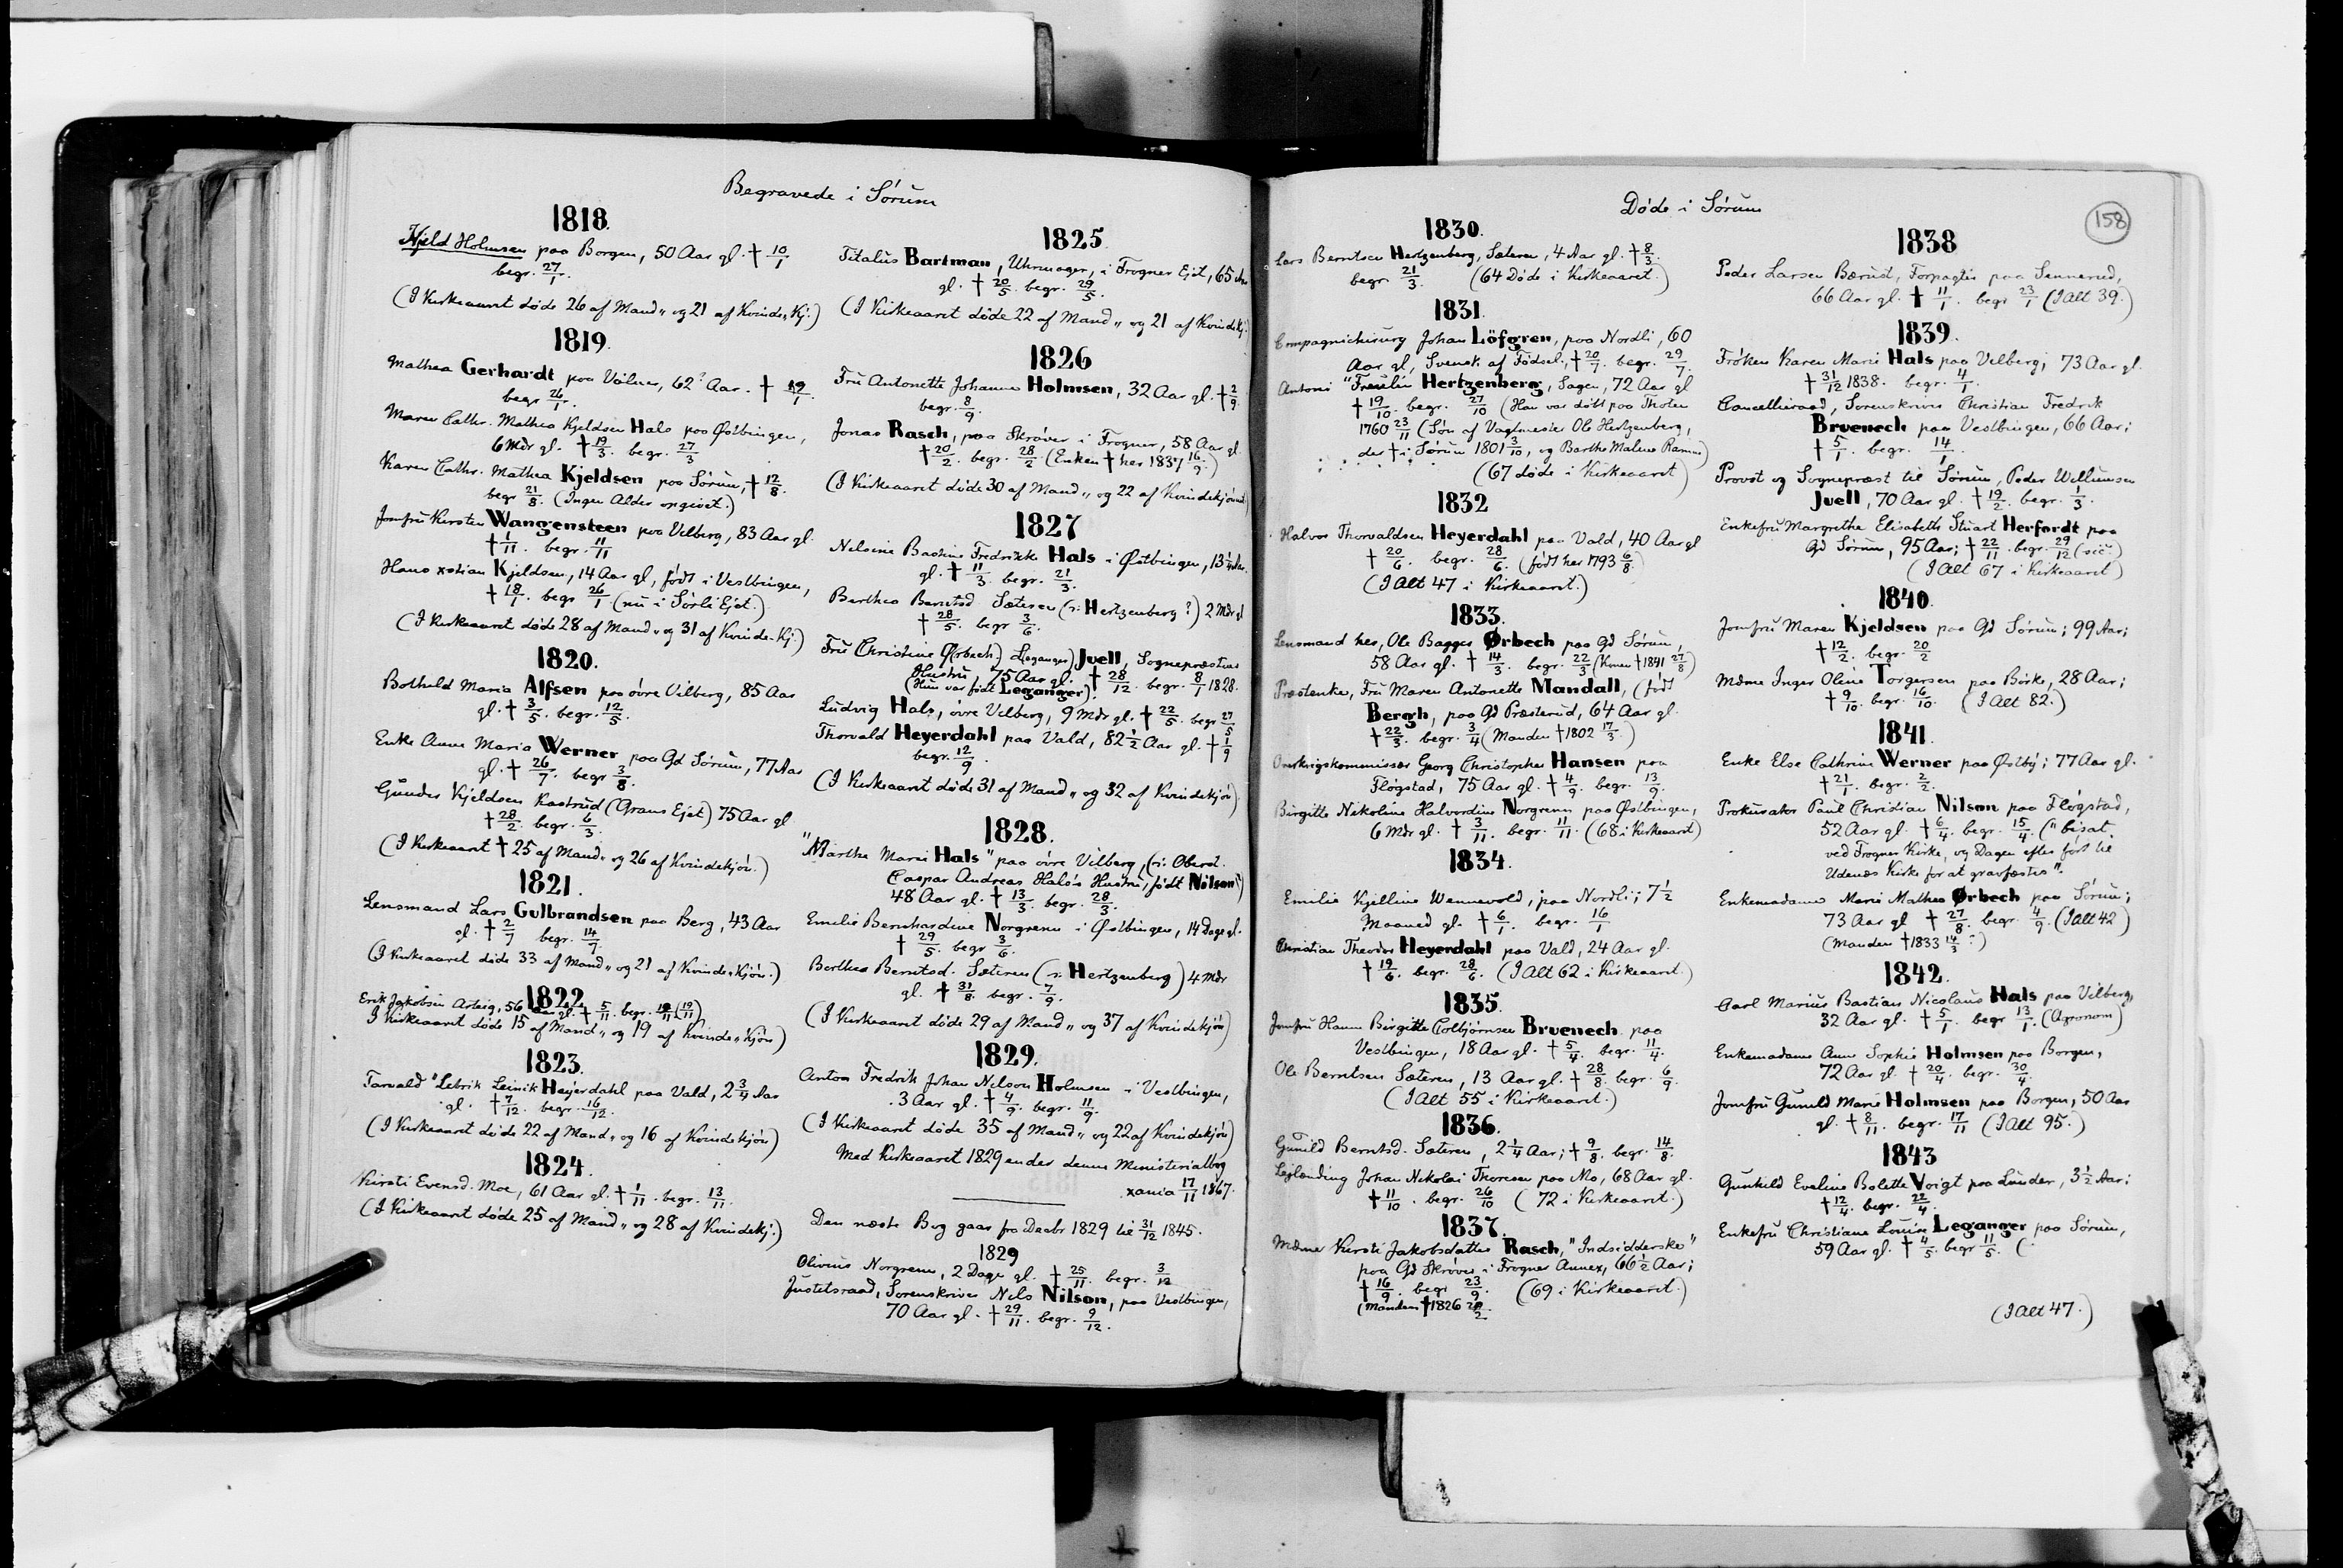 Begravede i Sørum
1818.
Kjeld Holmsen paa Borgen, 50 Aar gl. † 10/1
begr. 27/1.
(I Kirkeaaret døde 26 af Mand„ og 21 af Kvinde„Kj.)
1819.
Mathea Gerhardt paa Vølner, 62? Aar. † 19/1.
begr 26/1.
Maren Cathr. Mathea Kjeldsen Hals paa Østbingen,
6 Mdr gl. † 19/3. begr. 27/3
Karen Cathr. Mathea Kjeldsen paa Sørum, † 12/8.
begr 21/8. (Ingen Alder angivet.)
Jomfru Kirsten Wangensteen paa Vilberg, 83 Aar gl.
† 1/11. begr. 11/11
Hans xstian Kjeldsen, 14 Aar gl, født i Vestbingen,
† 18/1. begr 26/1 (nu i Sørli Ejet.)
(I Kirkeaaret døde 28 af Mand„ og 31 af Kvinde-Kj.)
1820.
Bothild Maria Alfsen paa øvre Vilberg, 85 Aar
gl. † 3/5. begr. 12/5.
Enke Anne Maria Werner paa Gd Sørum, 77 Aar
gl. † 26/7. begr 3/8.
Gunder Kjeldsen Kastrud (Grans Ejet) 75 Aar gl
† 28/2. begr. 6/3.
(I Kirkeaaret † 25 af Mand„ og 26 af Kvindekjøn.)
1821.
Lensmand Lars Gulbrandsen paa Berg, 43 Aar
gl. † 2/7 begr. 14/7.
(I Kirkeaaret døde 33 af Mand„ og 21 af Kvinde„Kjøn.)
1822
Erik Jakobsen Arteig, 56 Aar gl. † 5/11. begr. 18/11 (19/11)
I Kirkeaaret døde 15 af Mand„ og 19 af Kvinde„Kjøn)
1823.
Tarvald "Lebrik Leinik Heyerdahl paa Vald, 2 3/4 Aar
gl. † 7/12. begr. 16/12.
(I Kirkeaaret døde 22 af Mand„ og 16 af Kvindekjøn)
1824.
Kirsti Evensd. Moe, 61 Aar gl. † 1/11. begr. 13/11.
(I Kirkeaaret døde 25 af Mand„ og 28 af Kvindekj.)
1825.
Titalus Bartman, Uhrmager, i Frogner Ejet, 65 Aar
gl. † 20/5. begr. 29/5.
(I Kirkeaaret døde 22 af Mand„ og 21 af Kvindekj.)
1826
Fru Antonette Johanne Holmsen, 32 Aar gl. † 2/9.
begr. 8/9.
Jonas Rasch, paa Skrøver i Frogner, 58 Aar gl.
† 20/2. begr. 28/2 (Enken † her 1837 16/9.)
(I Kirkeaaret døde 30 af Mand„ og 22 af Kvindekjønnet)
1827
Nilsine Bastine Fredrikke Hals i Østbingen, 13 1/4 Aar.
gl. † 11/3. begr. 21/3.
Berthea Berntsd Sæteren (ɔ: Hertzenberg?) 2 Mdr gl
† 28/5. begr 3/6.
Fru Christine Ø(rbech) L(eganger) Juell, Sognepræstens
Hustru 75 Aar gl. † 28/12. begr. 8/1 1828.
(Hun var født Leganger)
Ludvig Hals, øvre Vilberg, 9 Mdr gl. † 22/5. begr 27/5
Thorvald Heyerdahl paa Vald, 82 1/2 Aar gl. † 1/9
begr. 12/9.
(I Kirkeaaret døde 31 af Mand„ og 32 af Kvindekjøn)
1828.
"Marthe Marie Hals" paa øvre Vilberg, (ɔ: Oberst.
Caspar Andreas Hals's Hustru, født Nilson)
48 Aar gl. † 13/3. begr. 28/3.
Emilie Bernhardine Norgrenn i Østbingen, 14 Dage gl.
† 29/5. begr 3/6.
Berthea Berntsd. Sæteren (ɔ: Hertzenberg) 4 Mdr
gl. † 31/8. begr. 7/9.
(I Kirkeaaret døde 29 af Mand„ og 37 af Kvindekjøn)
1829.
Anton Fredrik Johan Nilson Holmsen i Vestbingen,
3 Aar gl. † 4/9. begr. 11/9.
(I Kirkeaaret døde 35 af Mand„ og 22 af Kvindekjøn)
Med Kirkeaaret 1829 ender denne Ministerialbog
xania 17/11 1867.
Den næste Bog gaar fra Decbr 1829 til 31/12 1845.
1829
Olivius Norgrenn, 2 Dage gl. † 25/11. begr. 3/12
Justitsraad, Sorenskriver Nils Nilson, paa Vestbingen,
70 Aar gl. † 29/11. begr. 9/12.
Døde i Sørum
158
1830.
Lars Berntsen Hertzenberg, Sæteren, 4 Aar gl. † 8/3.
begr 21/3. (64 Døde i Kirkeaaret.)
1831.
Compagnichirurg Johan Löfgren, paa Nordli, 60
Aar gl, Svensk af Fødsel, † 20/7. begr. 29/7.
Antoni "Freulin Hertzenberg, Sagen, 72 Aar gl
† 19/10. begr. 27/10 (Han var født paa Thoten
1760 23/11 (Søn af Vagtmester Ole Hertzenberg,
der † i Sørum 1801 3/10, og Barthe Malene Ramm)
(67 døde i Kirkeaaret)
1832
Halvor Thorvaldsen Heyerdahl paa Vald, 40 Aar gl
† 20/6. begr. 28/6. (født her 1793 6/8)
(I Alt 47 i Kirkeaaret.)
1833.
Lensmand her, Ole Bagger Ørbech paa Gd Sørum,
58 Aar gl. † 14/3. begr. 22/3 (Konen † 1841 27/8)
Præstenke, Fru Maren Antonette Mandall, (født
Bergh, paa Gd Præsterud, 64 Aar gl.
† 22/3. begr. 3/4 (Manden † 1802 17/3.)
Overkrigskommissær Georg Christopher Hansen paa
Fløgstad, 75 Aar gl. † 4/9. begr. 13/9.
Birgitte Nikoline Halvordine Norgrenn paa Østbingen,
6 Mdr gl. † 3/11. begr. 11/11. (68 i Kirkeaaret)
1834.
Emilie Kjelline Wennevold, paa Nordli; 7 1/2
Maaned gl. † 6/1. begr. 16/1
Christian Theodor Heyerdahl paa Vald, 24 Aar gl.
† 19/6. begr. 28/6. (I Alt 62 i Kirkeaaret.)
1835.
Jomfru Hanne Birgitte Colbjørnsen Bruenech paa
Vestbingen, 18 Aar gl. † 5/4. begr. 11/4.
Ole Berntsen Sæteren, 13 Aar gl. † 28/8. begr. 6/9.
(I Alt 55 i Kirkeaaret.)
1836.
Gunild Berntsd. Sæteren, 2 1/4 Aar; † 9/8. begr. 14/8.
Lejlending Johan Nikolai Thoresen paa Mo, 68 Aar gl.
† 11/10. begr. 26/10 (72 i Kirkeaaret.)
1837.
Mdme Kirsti Jakobsdatter Rasch, "Indsidderske"
paa Gd Skrøver i Frogner Annex, 66 1/2 Aar;
† 16/9. begr 23/9. (69 i Kirkeaaret.)
(Manden † 1826 20/2.
1838
Peder Larsen Bærust, Forpagter paa Sennerud,
66 Aar gl. † 11/1. begr 23/1 (I Alt 39.)
1839.
Frøken Karen Marie Hals paa Vilberg; 73 Aar gl.
† 31/12 1838. begr. 4/1.
Cancelliraad, Sorenskriver Christian Fredrik
Bruenech paa Vestbingen, 66 Aar;
† 5/1. begr. 14/1.
Provst og Sognepræst til Sørum, Peder Willumsen
Juell, 70 Aar gl. † 19/2. begr. 1/3.
Enkefru Margrethe Elisabeth Stuart Herfordt paa
Gd Sørum, 95 Aar; † 22/11. begr. 29/12 (sic.)
(I Alt 67 i Kirkeaaret)
1840.
Jomfru Maren Kjeldsen paa Gd Sørum; 99 Aar;
† 12/2. begr. 20/2
Mdme Inger Oline Torgersen paa Børke, 28 Aar;
† 9/10. begr. 16/10. (I Alt 82.)
1841.
Enke Else Cathrine Werner paa Østby; 77 Aar gl.
† 21/1. begr. 2/2.
Prokurator Paul Christian Nilson paa Fløgstad,
52 Aar gl. † 6/4. begr. 15/4. ("bisat
ved Frogner Kirke, og Dagen efter ført til
Udenæs Kirke for at gravfæstes".
Enkemadame Marie Mathea Ørbech paa Sørum;
73 Aar gl † 27/8. begr. 4/9. (I Alt 42)
(Manden † 1833 14/3?)
1842.
Carl Marius Bastian Nicolaus Hals paa Vilberg,
32 Aar gl. † 5/1. begr 13/1. (Agronom)
Enkemadame Anne Sophie Holmsen paa Borgen,
72 Aar gl. † 20/4. begr. 30/4.
Jomfru Gunild Marie Holmsen paa Borgen, 50 Aar
gl. † 8/11. begr. 17/11 (I Alt 95.)
1843
Gunhild Eveline Bolette Voigt paa Lunder, 3 1/2 Aar;
† 12/4. begr. 22/4.
Enkefru Christiane Louise Leganger paa Sørum,
59 Aar gl. † 4/5. begr 11/5. (
(I Alt 47.)